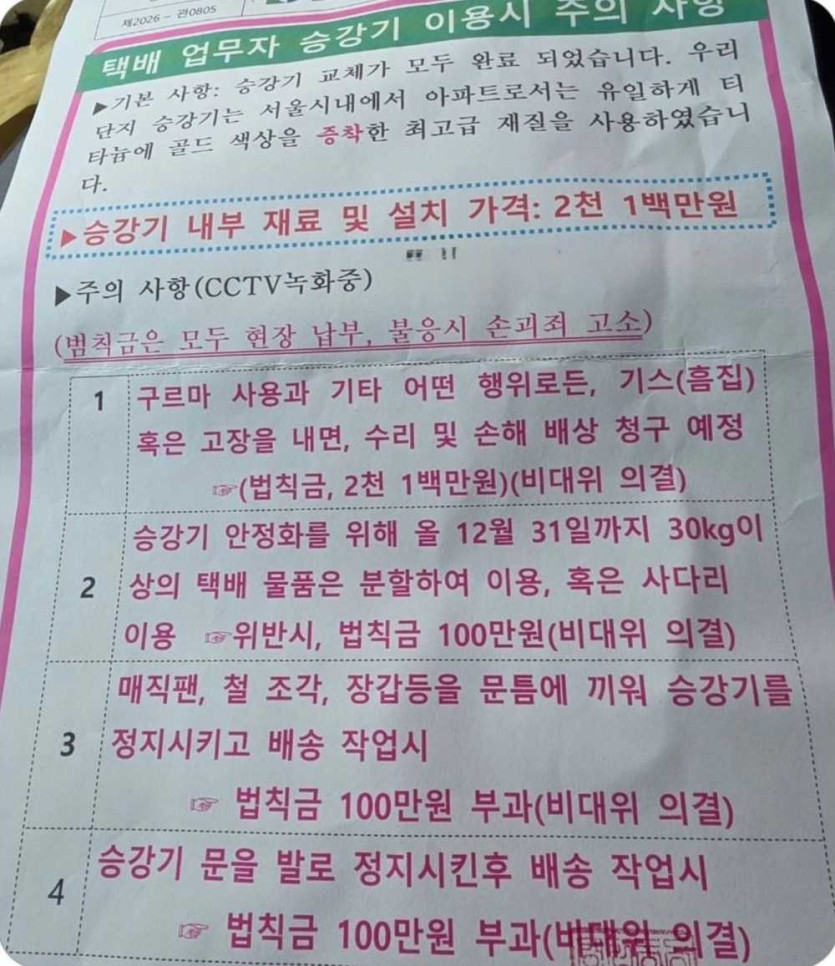 제2026 - 관0805
택배 업무자 승강기 이용시 주의 사항
▶기본 사항: 승강기 교체가 모두 완료 되었습니다. 우리
단지 승강기는 서울시내에서 아파트로서는 유일하게 티
타늄에 골드 색상을 증착한 최고급 재질을 사용하였습니
다.
▶승강기 내부 재료 및 설치 가격: 2천 1백만원
▶주의 사항(CCTV녹화중)
(범칙금은 모두 현장 납부, 불응시 손괴죄 고소)
1 구르마 사용과 기타 어떤 행위로든, 기스(흠집)
혹은 고장을 내면, 수리 및 손해 배상 청구 예정
☞(법칙금, 2천 1백만원)(비대위 의결)
승강기 안정화를 위해 올 12월 31일까지 30kg이
2 상의 택배 물품은 분할하여 이용, 혹은 사다리
이용 ☞위반시, 법칙금 100만원(비대위 의결)
매직팬, 철 조각, 장갑등을 문틈에 끼워 승강기를
3 정지시키고 배송 작업시
☞ 법칙금 100만원 부과(비대위 의결)
4 승강기 문을 발로 정지시킨후 배송 작업시
☞ 법칙금 100만원 부과(비대위 의결)